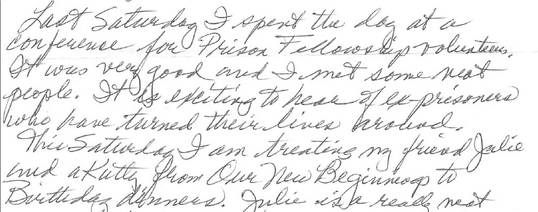 Last Saturday I spent the day at a
conference for Prison Fellowship volunteers.
It was very good and I met some neat
people. It is exciting to hear of ex-prisoners
who have turned their lives around.
This Saturday I am treating my friend Julie
and a Kitty from Our New Beginnings to
Birthday dinners. Julie is a really neat